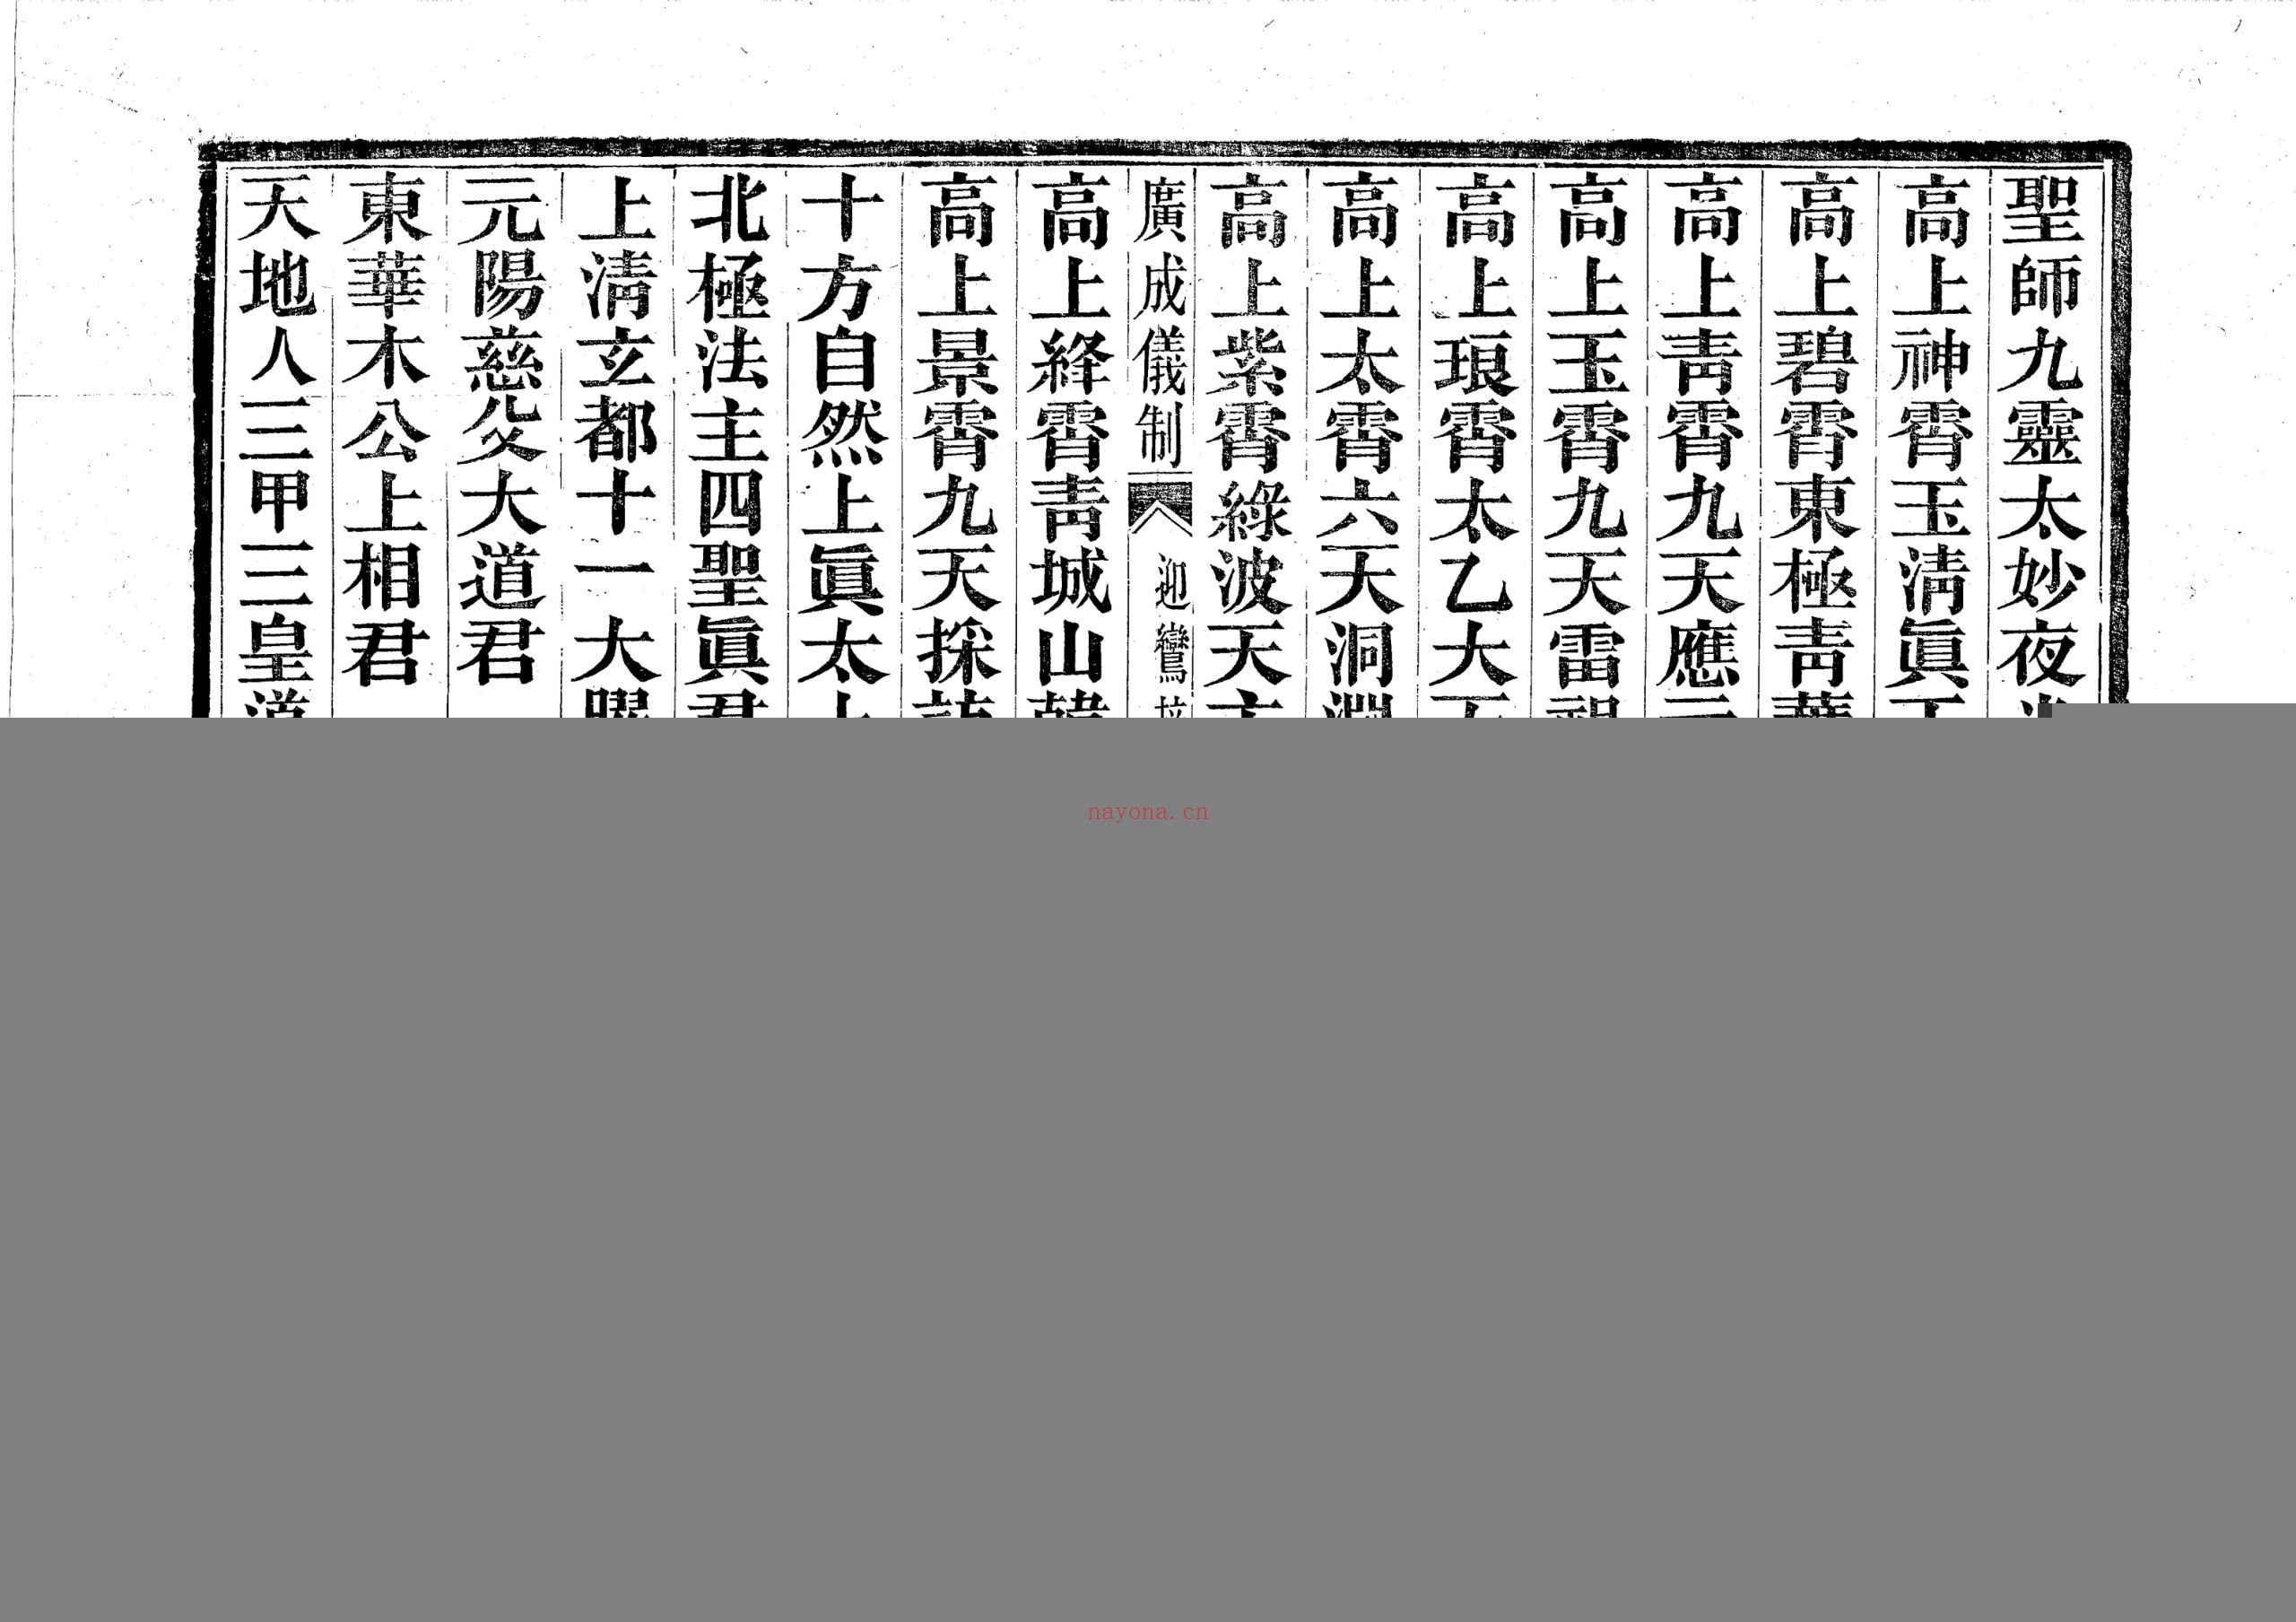 聖師九靈太妙夜
高上神霄玉淸眞
高上碧霄東極靑華
高上靑霄九天應元
高上玉霄九天雷祖
高上琅霄太乙大
高上太霄六天洞淵
高上紫霄綠波天主
廣成儀制 迎鸞接
高上絳霄靑城山韓
高上景霄九天採訪
十方自然上眞太上
北極法主四聖眞君
上淸玄都十一大曜
元陽慈父大道君
東華木公上相君
天地人三甲三皇道
nayona.cn